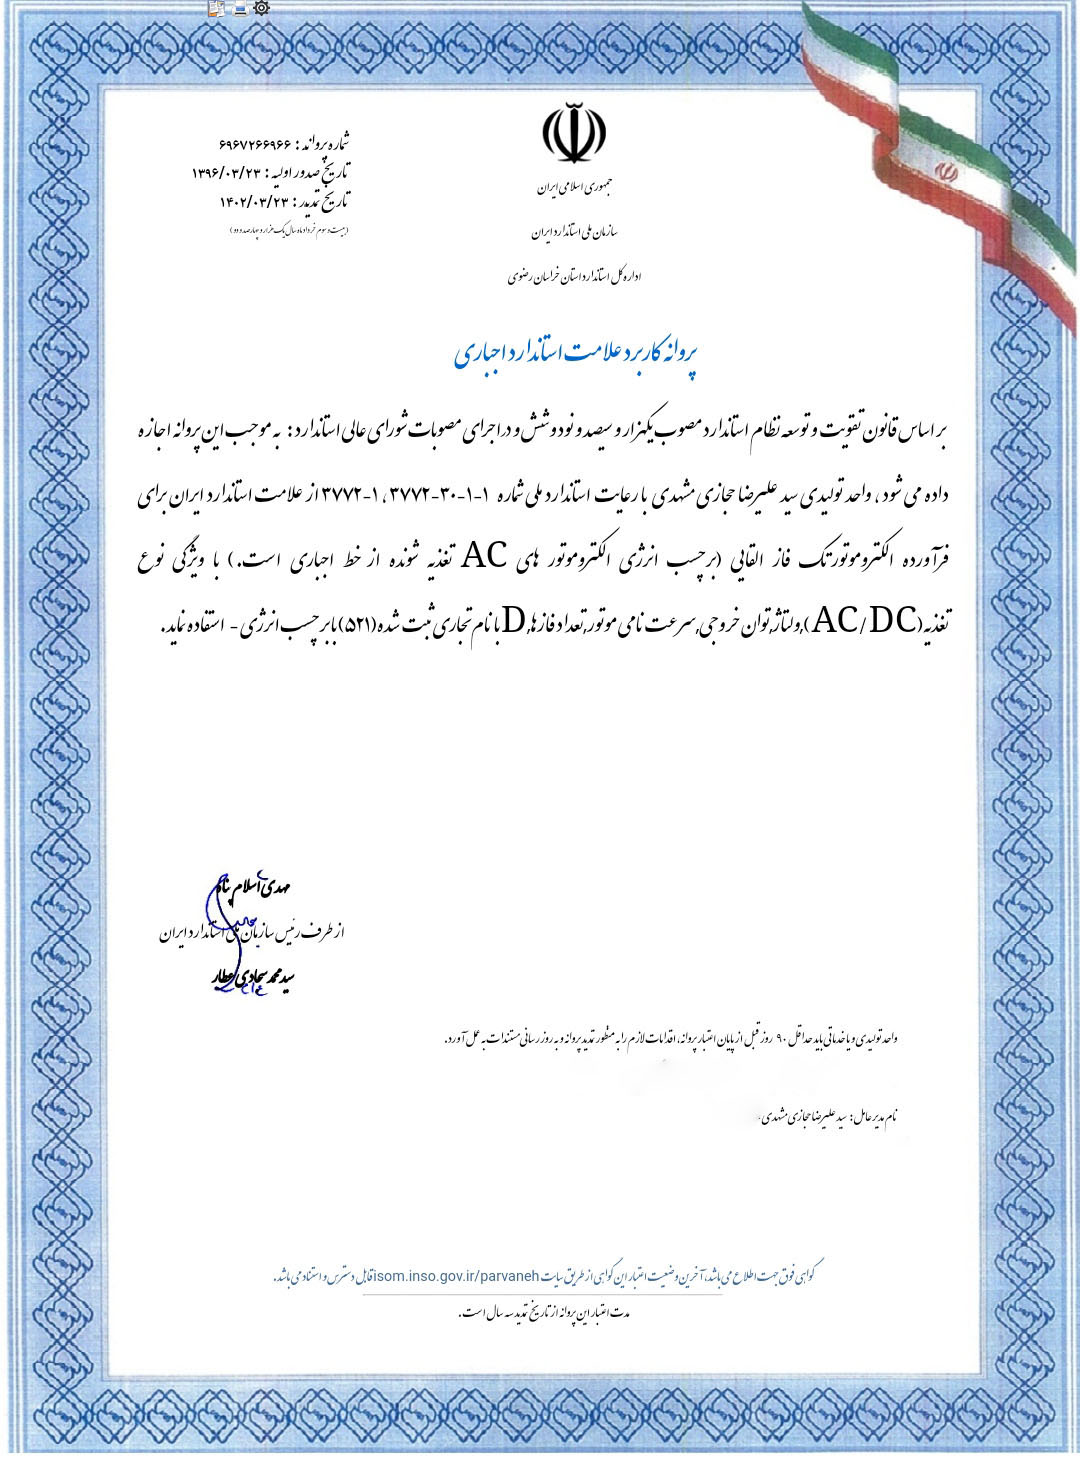 شماره پروانه : ۶۹۶۷۲۶۶۹۶۶
تاریخ صدور اولیه : ۱۳۹۶/۰۳/۲۳
تاریخ تمدید : ۱۴۰۲/۰۳/۲۳
(بیست و سوم خرداد ماه سال یک هزار و چهارصد و دو)
جمهوری اسلامی ایران
سازمان ملی استاندارد ایران
اداره کل استاندارد استان خراسان رضوی
پروانه کاربرد علامت استاندارد اجباری
بر اساس قانون تقویت و توسعه نظام استاندارد مصوب یکهزار و سیصد و نود و شش و در اجرای مصوبات شورای عالی استاندارد : به موجب این پروانه اجازه
داده می شود ، واحد تولیدی سید علیرضا حجازی مشهدی با رعایت استاندارد ملی شماره ۱-۱-۳۰-۳۷۷۲ ، ۱-۳۷۷۲ از علامت استاندارد ایران برای
فرآورده الکتروموتور تک فاز القایی (برچسب انرژی الکتروموتور های AC تغذیه شونده از خط اجباری است.) با ویژگی نوع
تغذیه(AC/DC),ولتاژ,توان خروجی,سرعت نامی موتور,تعداد فازها,D با نام تجاری ثبت شده(۵۲۱)بابرچسب انرژی - استفاده نماید.
مهدی اسلام پناه
از طرف رئیس سازمان ملی استاندارد ایران
سیدمحمد سجادی عطار
واحد تولیدی و یا خدماتی باید حداقل ۹۰ روز قبل از پایان اعتبار پروانه، اقدامات لازم را به منظور تمدید پروانه و به روز رسانی مستندات به عمل آورد.
نام مدیر عامل : سید علیرضا حجازی مشهدی
گواهی فوق جهت اطلاع می باشد، آخرین وضعیت اعتبار این گواهی از طریق سایت isom.inso.gov.ir/parvaneh قابل دسترس و استناد می باشد.
مدت اعتبار این پروانه از تاریخ تمدید سه سال است.